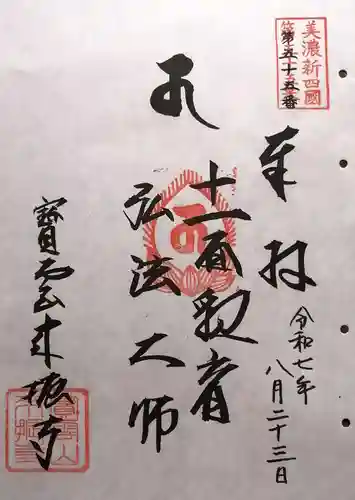 美濃新四國
第五十五番
奉拝
令和七年
八月二十三日
十一面観音
弘法大師
寶雲山来振寺